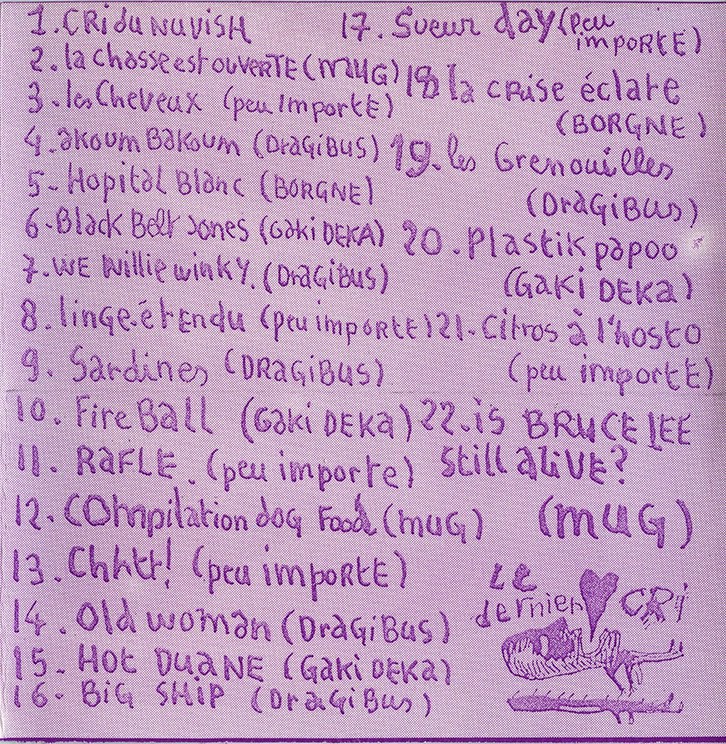 1. CRi du NuvisH
2. la chasse est ouVERTE (MUG)
3. les Cheveux (peu importe)
4. akoum Bakoum (DRaGiBUS)
5 - Hopital Blanc (BORGNE)
6. Black Belt Jones (Gaki DEKA)
7. WE Willie winky. (DRaGiBUS)
8. linge étendu (peu impoRtE)
9. Sardines (DRaGiBUS)
10. Fire Ball (Gaki DEKa)
11. RaFLE. (peu importe)
12. COmpilation dog Food (MUG)
13. Chhtt! (peu impoRtE)
14. Old woman (DRaGiBus)
15 - Hot DuaNE (Gaki DEKa)
16 - BiG SHiP (DRaGiBus)
17. Sueur day (peu
impoRtE)
18 la crise éclate
(BORGNE)
19. les Grenouilles
(DRaGiBus)
20. Plastik papoo
(Gaki DEKa)
21. Citros à l'hosto
(peu importE)
22. is BRUCE LEE
Still aliVE?
(MUG)
LE
dernier CRi